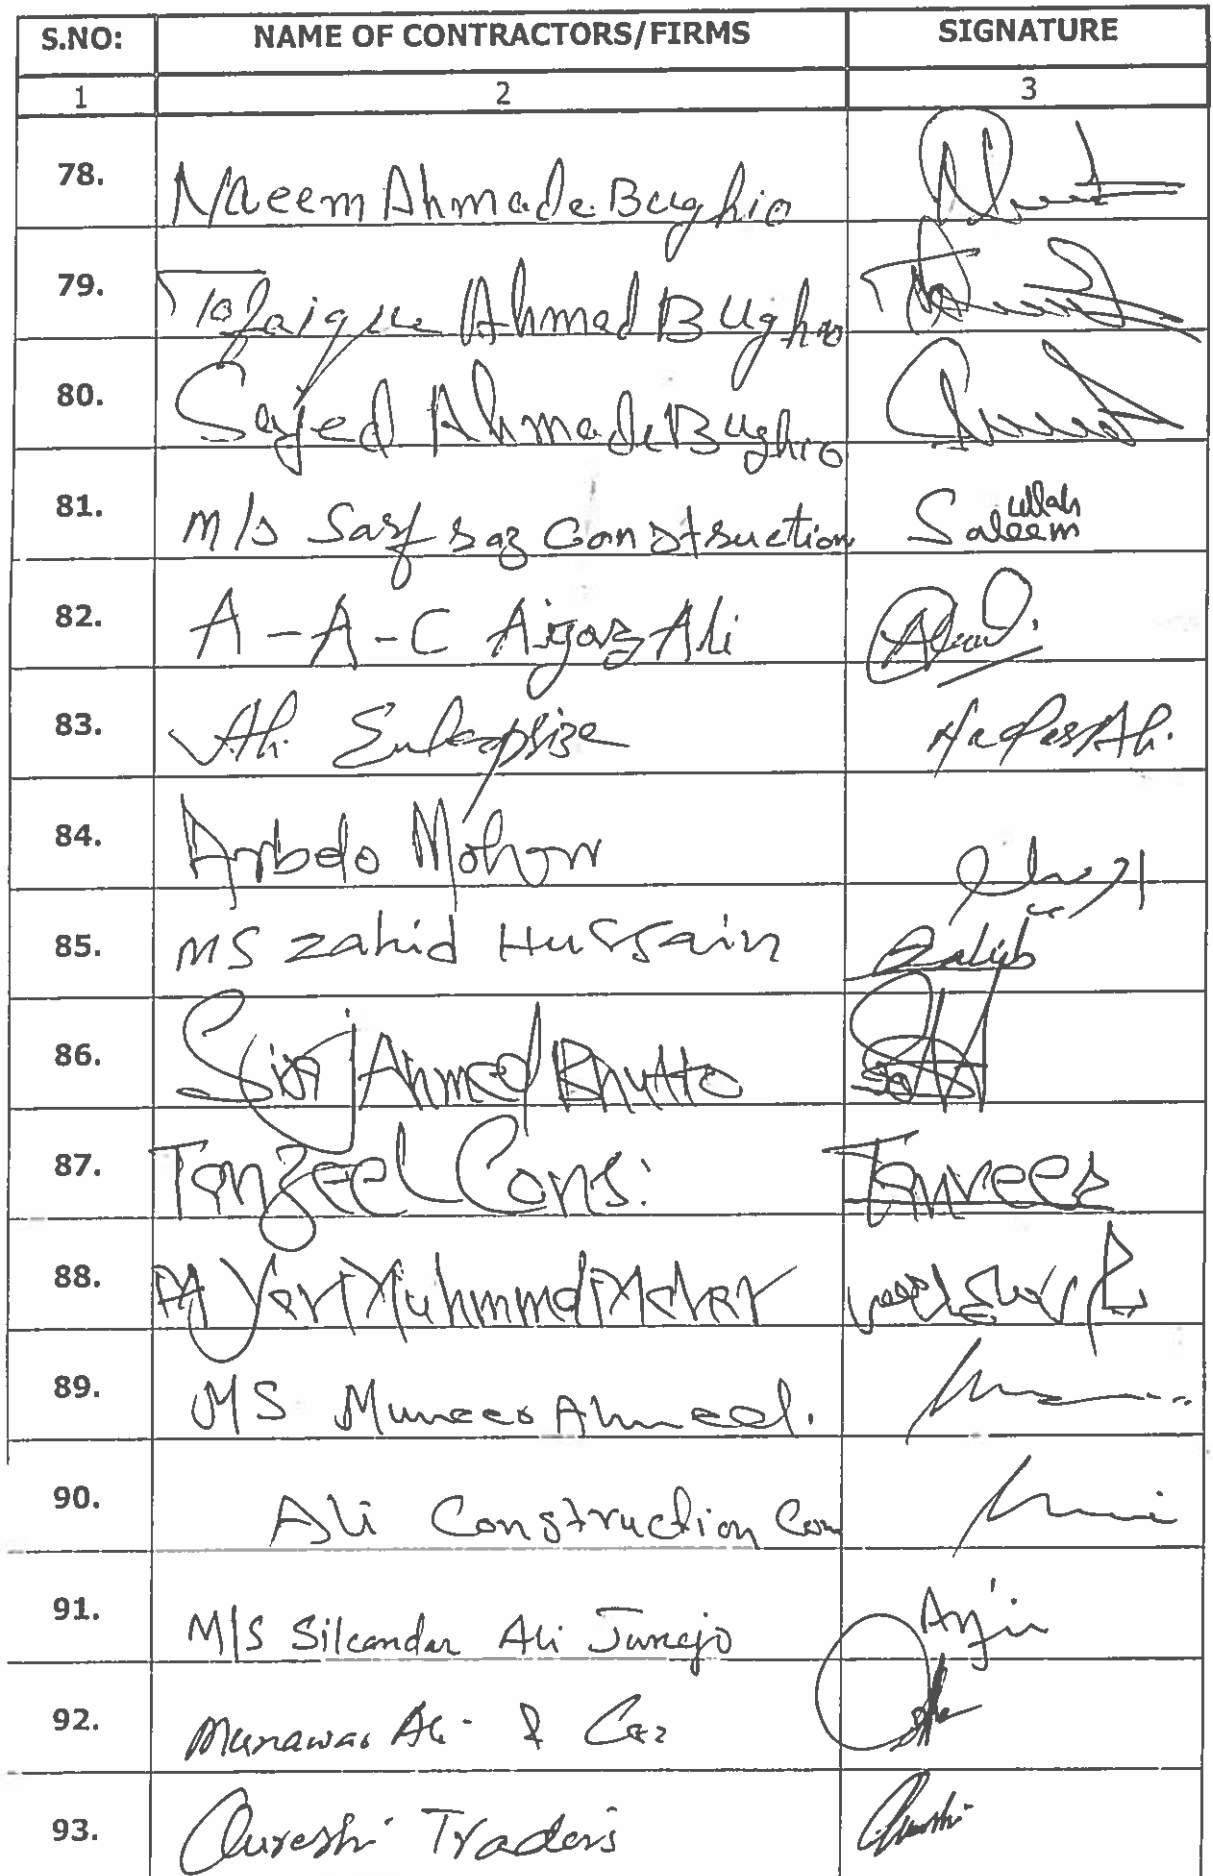 S.NO: NAME OF CONTRACTORS/FIRMS SIGNATURE
1 2 3
78. Naeem Ahmade Bughio
79. Tofaique Ahmad Bughio
80. Sayed Ahmade Bughio
81. M/s Sarfraz Construction Saleem ullah
82. A-A-C Aijaz Ali
83. Ali Enterprise
84.
85. MS Zahid Hussain
86. Siraj Ahmed Bhutto
87. Tanzeel Cons: Tanveer
88. Yar Muhmmd
89. MS Muneer Ahmeed.
90. Ali Construction Com
91. M/S Sikandar Ali Junejo
92. Munawar Ali & Co:
93. Qureshi Traders Qureshi